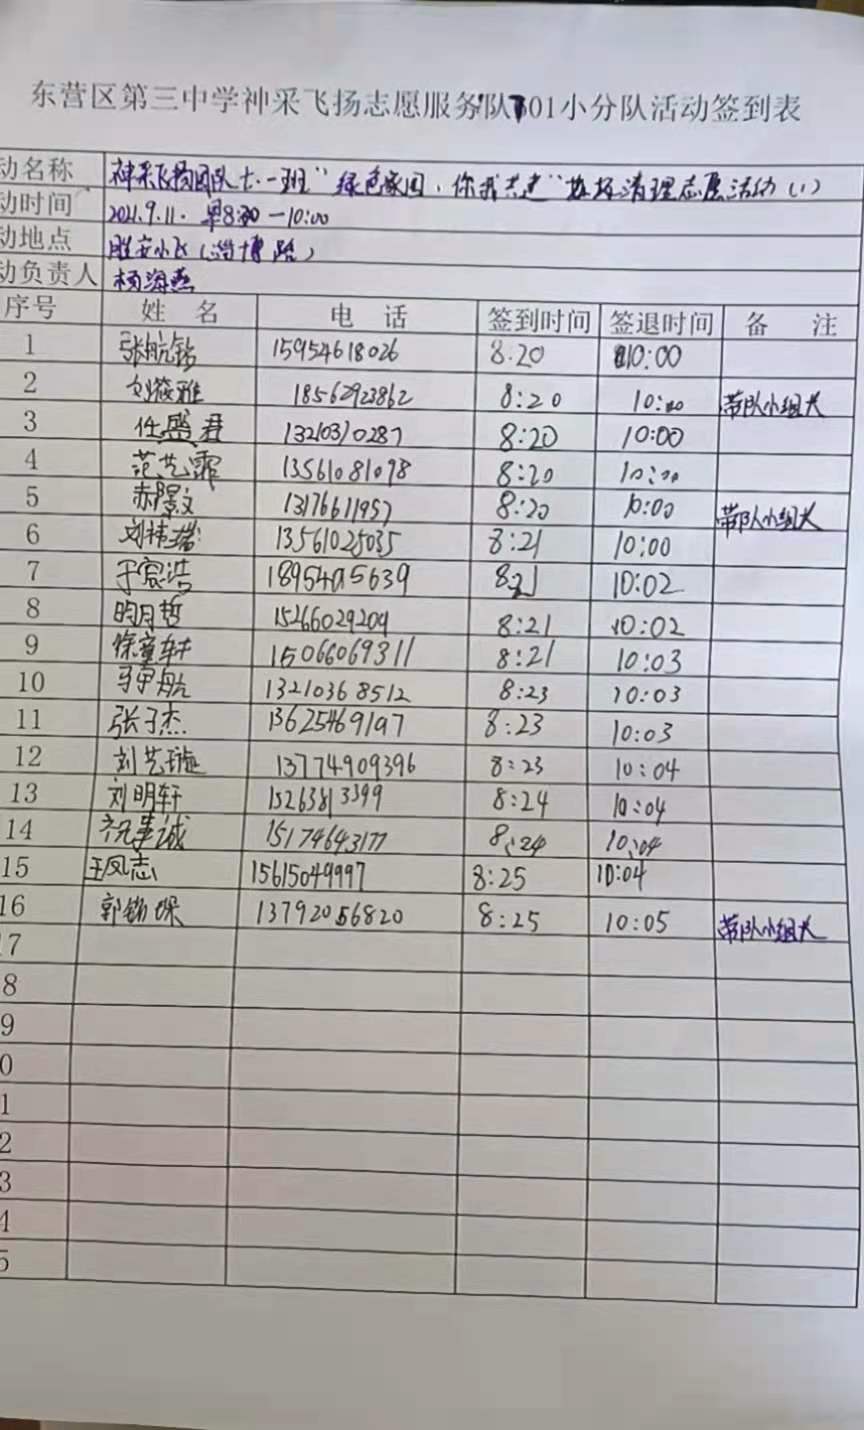 东营区第三中学神采飞扬志愿服务队701小分队活动签到表
动名称 神采飞扬团队七.一班"绿色家园,你我共建"垃圾清理志愿活动(1)
动时间 2021.9.11. 早8:30—10:00
动地点 胜安小区(淄博路)
动负责人 杨海燕
序号 姓 名 电 话 签到时间 签退时间 备 注
1 张航铭 15954618026 8.20 10:00
2 刘筱雅 18562923862 8:20 10:00 带队小组长
3 任盛君 13210310287 8:20 10:00
4 范艺霏 13561081098 8:20 10:00
5 郝景文 13176611957 8:20 10:00 带队小组长
6 刘祎瑞 13561025035 8:21 10:00
7 于宸浩 18954095639 8:21 10:02
8 明月哲 15266029209 8:21 10:02
9 徐童轩 15066069311 8:21 10:03
10 马宇航 13210368512 8:23 10:03
11 张子杰 13625469197 8:23 10:03
12 刘艺璇 13774909396 8:23 10:04
13 刘明轩 15263813399 8:24 10:04
14 事诚 15174643177 8:24 10:04
15 王凤志 15615049997 8:25 10:04
16 郭锦琛 13792056820 8:25 10:05 带队小组长
7
8
9
0
1
2
3
4
5